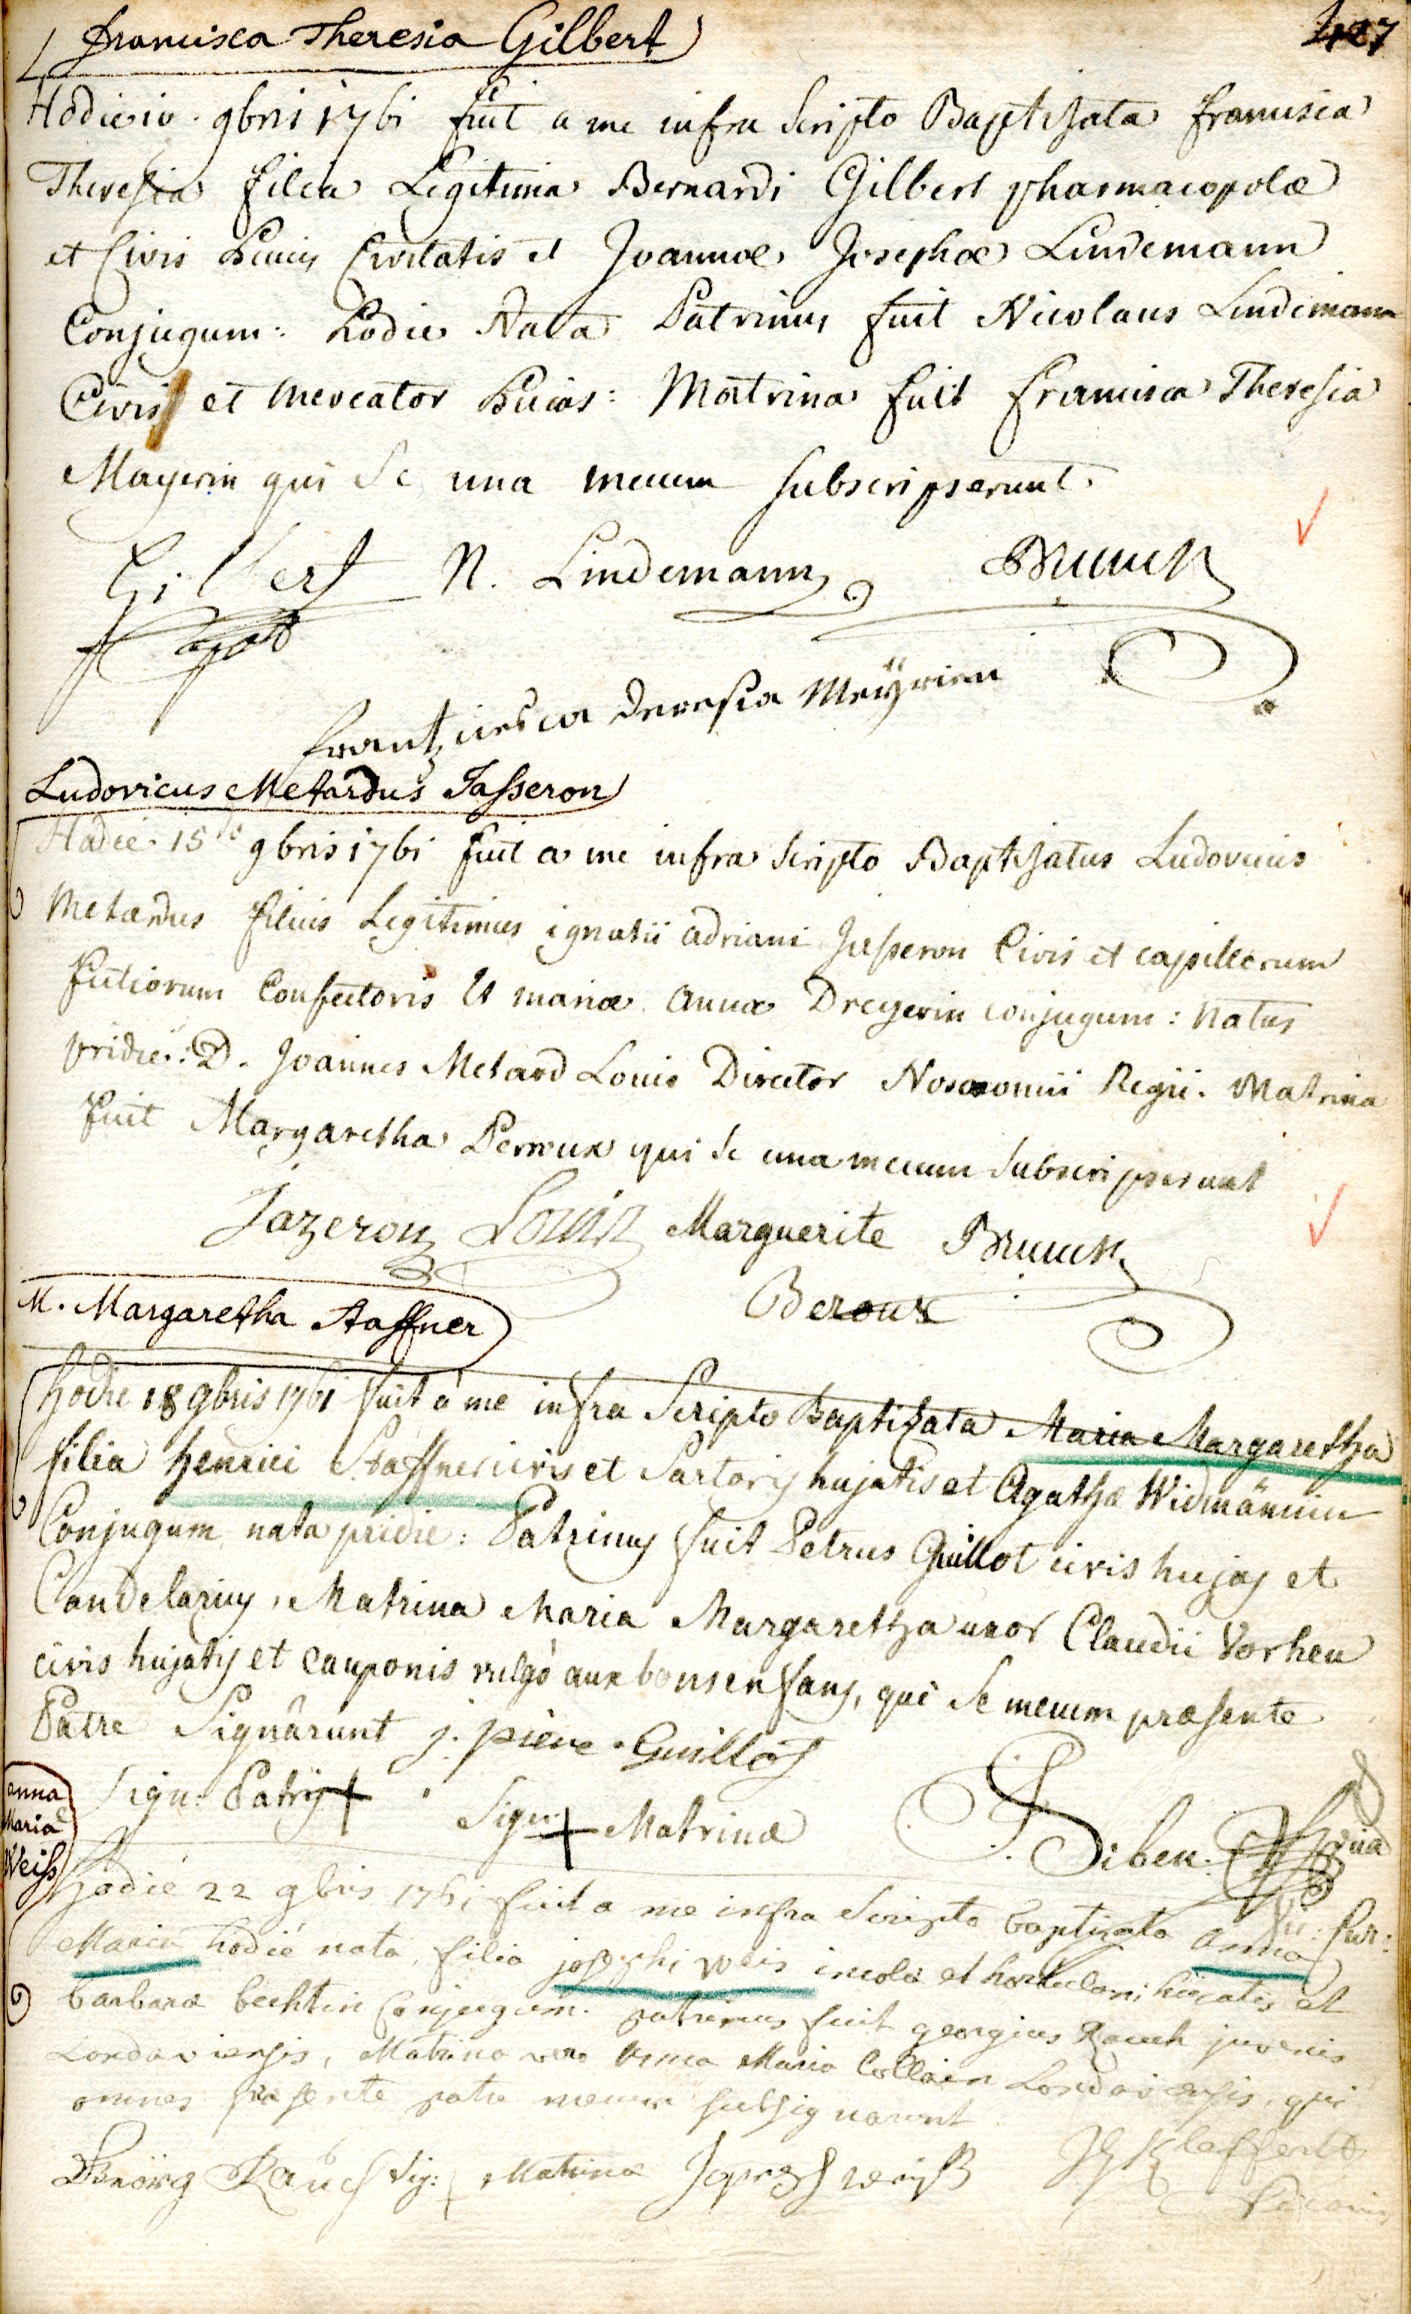 Francisca Theresia Gilbert
Hodie 10 9bris 1761 fuit a me infra Scripto Baptizata Francisca
Theresia filia Legitima Bernardi Gilbert pharmacopolæ
et Civis hujus Civitatis et Joannæ Josephæ Lindemann
Conjugum: hodie Nata Patrinus fuit Nicolaus Lindemann
Civis et Mercator hujas: Matrina fuit Francisca Theresia
Mayerin qui se una mecum subscripserunt.
Gilbert N. Lindemann Brunck
apot
frantzisca deresia Meÿrien
Ludovicus Metardus Jasseron
Hodie 15 9bris 1761 fuit a me infra Scripto Baptizatus Ludovicus
Metardus filius Legitimus ignatii adriani Jasseron Civis et capillorum
fictiorum Confectoris et mariæ annæ Dreyerin conjugum: natus
pridie: D. Joannes Metard Louis Director Nosocomii Regii. Matrina
fuit Margaretha Perroux qui se una mecum subscripserunt
Jazeron Louis Marguerite Brunck
Beroux
M. Margaretha Staffner
hodie 18 9bris 1761 fuit a me infra Scripto Baptizata Maria Margaretha
filia henrici Staffner civis et Sartoris hujatis et Agathæ Widmännin
Conjugum nata pridie: Patrinus fuit Petrus Guillot civis hujas et
Candelarius, Matrina Maria Margaretha uxor Claudii Vorheu
civis hujatis et cauponis vulgò aux bons enfans, qui se mecum præsente
Patre Signârunt j. piere Guillot
Sign: Patris + Sign: + Matrinæ Siben.
anna
Maria
Weiss
hodie 22 9bris 1761 fuit a me infra Scripto baptizata anna
Maria hodie nata, filia josephi weis incolæ et hortulani hujatis et
barbaræ bechtin Conjugum. patrinus fuit georgius Rauch juvenis
Landaviensis, Matrina vero Anna Maria Collain Landaviensis, qui
omnes præsente patre mecum subsignarunt
Rauch Sig: + Matrinæ Joseph weiß Kleffert